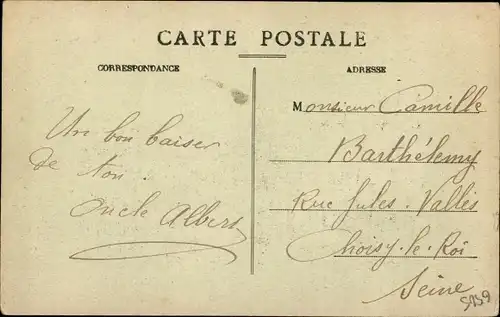 CARTE POSTALE
CORRESPONDANCE
ADRESSE
Un bon baiser
de ton
oncle Albert
Monsieur Camille
Barthélemy
Rue Jules. Vallès
Choisy-le-Roi
Seine